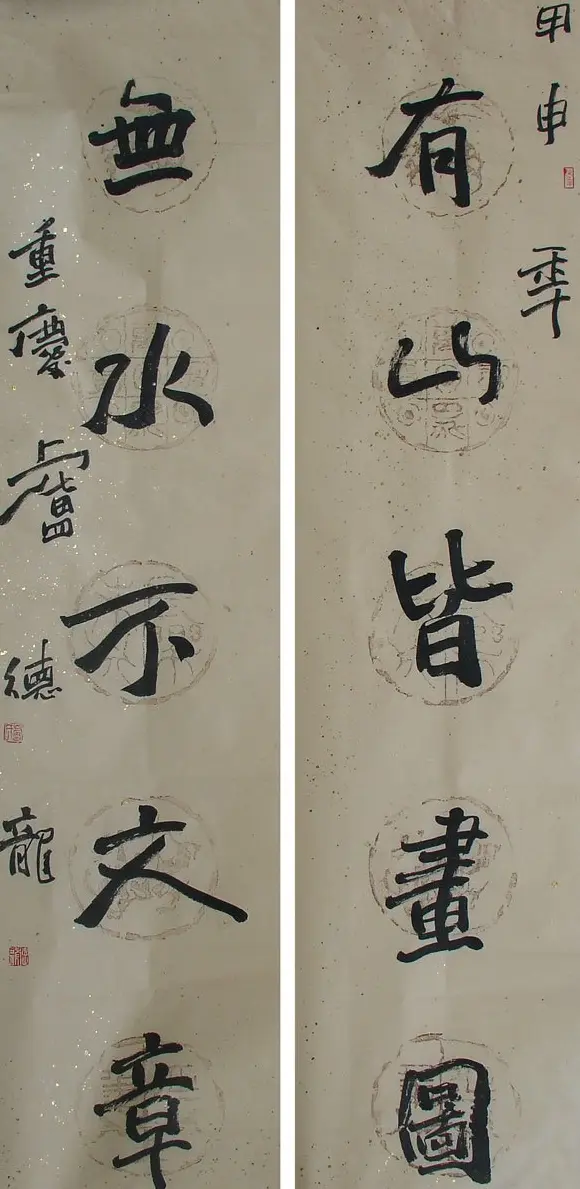 甲申 季
有山皆畫圖
無水不文章
重慶盧德龍